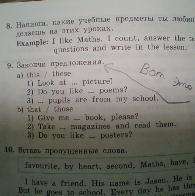 8. Напиши, какие учебные предметы ты любишь
делаешь на этих уроках.
Example: I like Maths. I count, answer the
questions and write in the lesson.
9. Закончи предложения.
a) this / these
1) Look at ... picture?
2) Do you like ... poems?
3) ... pupils are from my school.
b) that / those
1) Give me ... book, please?
2) Take ... magazines and read them.
3) Do you like ... posters?
10. Вставь пропущенные слова.
favourite, by heart, second, Maths, have,
I have a friend. His name is Jason. He is
But he goes to school. Every day he has
Вот это